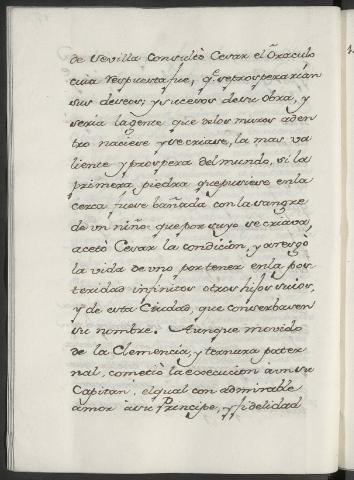 de Sevilla Consultò Cesar el Oraculo
cuia respuesta fue, q.e se prosperarian
sus deseos; y sucesos de su Obra, y
seria la gente que de los muros aden
tro naciese y se criase, la mas va
liente y prospera del mundo, si la
primera piedra que pusiese en la
cerca fuese bañada con la sangre
de vn niño que por suyo se criava,
acetò Cesar la condicion, y arresgò
la vida de vno por tener en la pos-
teridad infinitos otros hijos suios,
y de esta Ciudad, que conserbasen
su nombre. Aunque movido
de la Clemencia, y ternura pater
nal, cometiò la execucion à un su
Capitan, el qual con admirable
amor à su Principe, y fidelidad